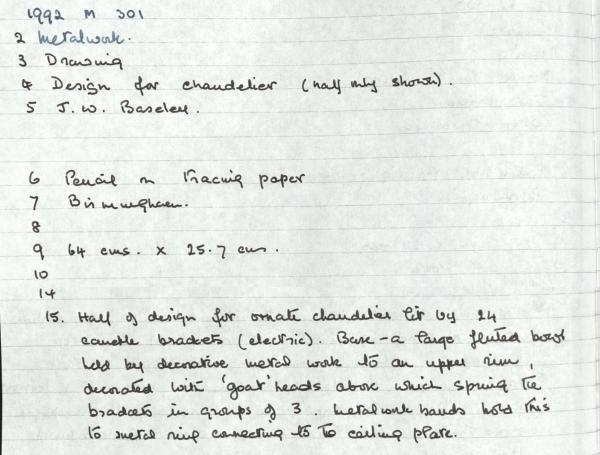 1992 M 301
2 Metalwork.
3 Drawing
4 Design for chandelier (half only shown).
5 J. W. Baseley.
6 Pencil on tracing paper
7 Birmingham.
8
9 64 cms. x 25.7 cms.
10
14
15. Half of design for ornate chandelier lit by 24
candle brackets (electric). Base - a large fluted bowl
held by decorative metal work to an upper rim,
decorated with 'goat' heads above which spring the
brackets in groups of 3. Metalwork bands hold this
to metal ring connecting to the ceiling plate.